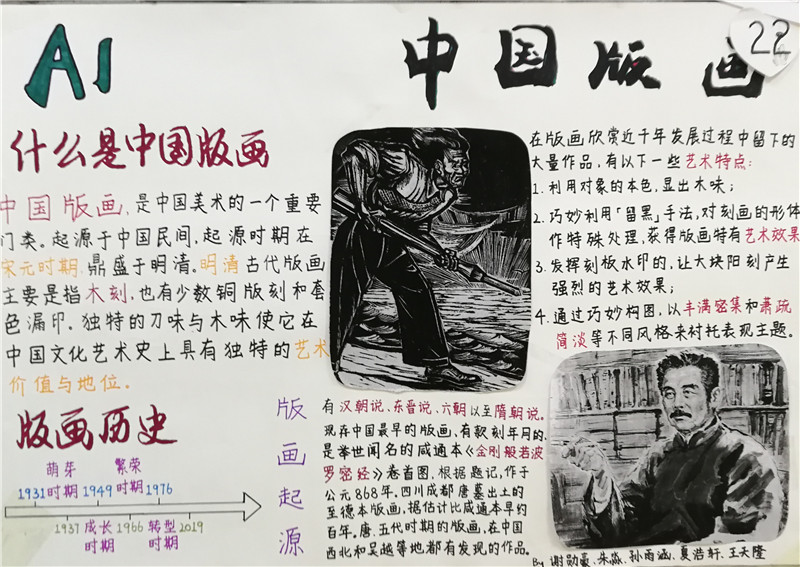 A1
中国版画
22
什么是中国版画
中国版画,是中国美术的一个重要
门类。起源于中国民间,起源时期在
宋元时期,鼎盛于明清。明清古代版画
主要是指木刻,也有少数铜版刻和套
色漏印。独特的刀味与木味使它在
中国文化艺术史上具有独特的艺术
价值与地位。
版画历史
萌芽 繁荣
1931时期1949时期1976
1937成长1966转型2019
时期 时期
版画起源
有汉朝说、东晋说、六朝以至隋朝说。
现存中国最早的版画、有款刻年月的,
是举世闻名的咸通本《金刚般若波
罗密经》卷首图,根据题记,作于
公元868年,四川成都唐墓出土的
至德本版画,据估计比咸通本早约
百年。唐、五代时期的版画,在中国
西北和吴越等地都有发现的作品。
在版画欣赏近千年发展过程中留下的
大量作品,有以下一些艺术特点:
1.利用对象的本色,显出木味;
2.巧妙利用「留黑」手法,对刻画的形体
作特殊处理,获得版画特有艺术效果
3.发挥刻板水印的,让大块阳刻产生
强烈的艺术效果;
4.通过巧妙构图,以丰满密集和萧疏
简淡等不同风格来衬托表现主题。
By 谢勋豪、朱淼、孙雨诚、夏浩轩、王天隆